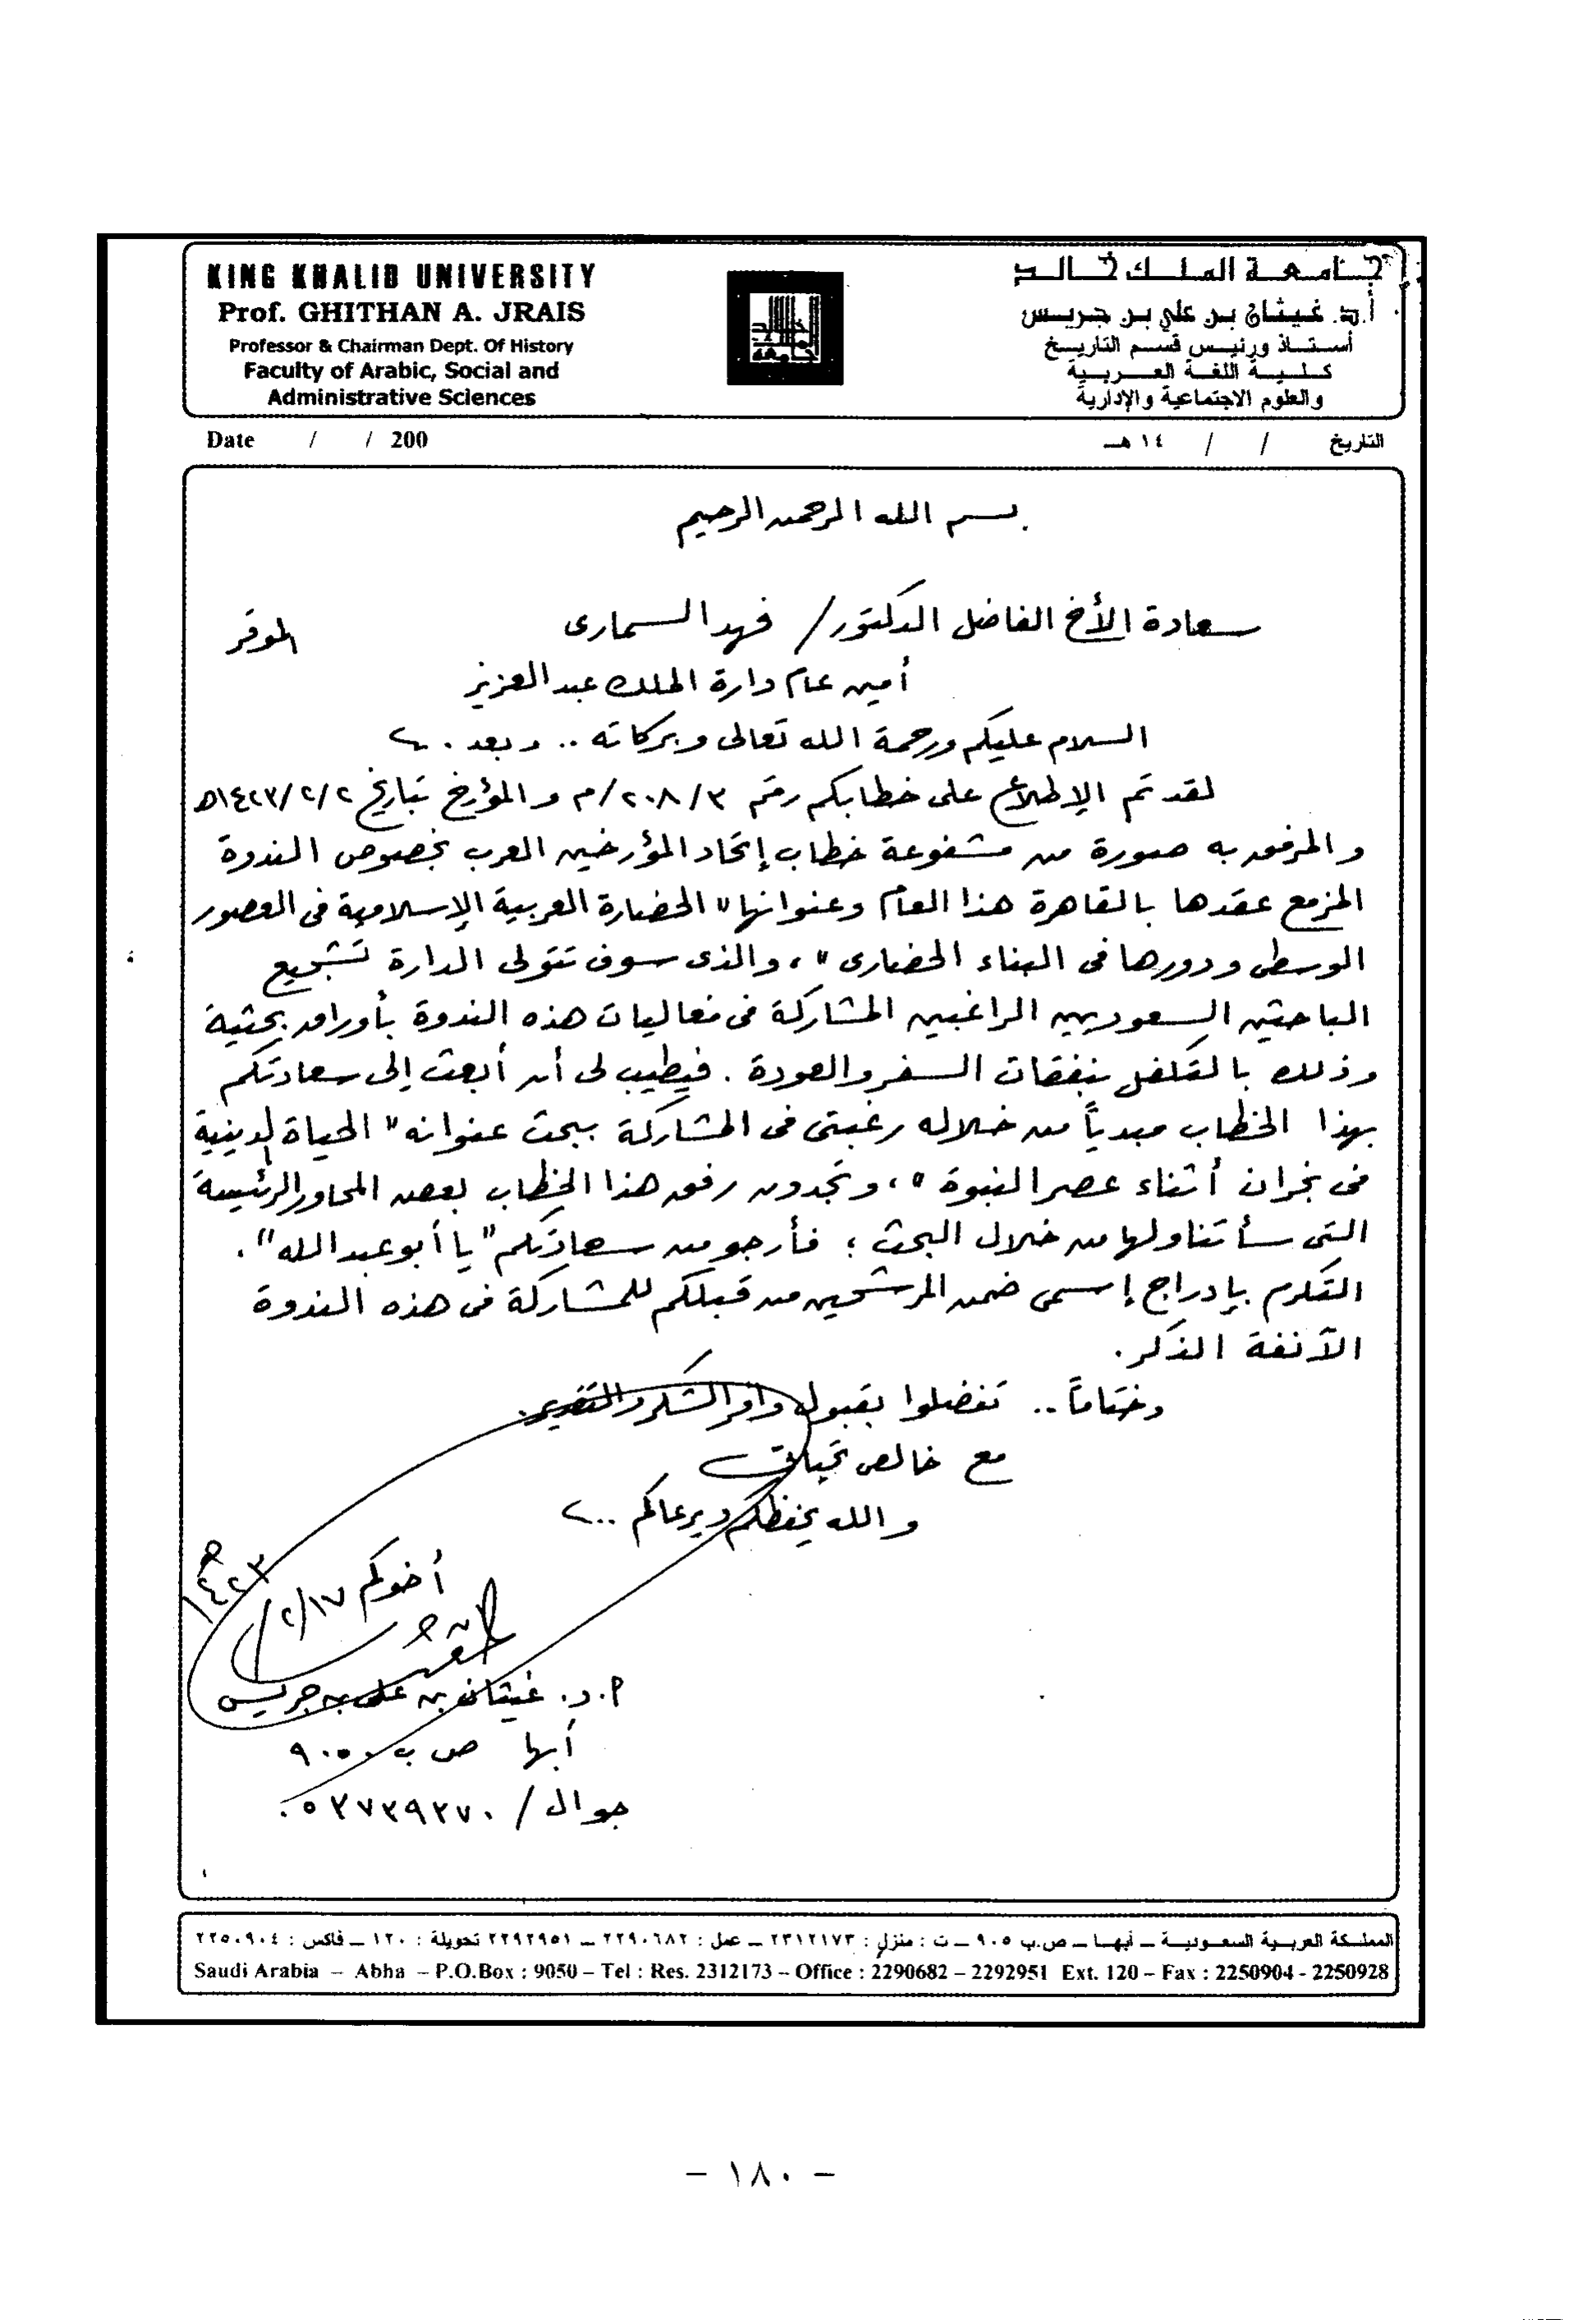 KING KHALID UNIVERSITY
Prof. GHITHAN A. JRAIS
Professor & Chairman Dept. Of History
Faculty of Arabic, Social and
Administrative Sciences
جامعة الملك خالد
أ.د. غيثان بن علي بن جريس
أستاذ ورئيس قسم التاريخ
كلية اللغة العربية
والعلوم الاجتماعية والإدارية
Date / / 200
التاريخ / / ١٤هـ
بسم الله الرحمن الرحيم
سعادة الأخ الفاضل الدكتور/ فهد السمارى الموقر
أمين عام دارة الملك عبد العزيز
السلام عليكم ورحمة الله تعالى وبركاته .. وبعد ..
لقد تم الإطلاع على خطابكم رقم ٢٠٨/٣/م والمؤرخ بتاريخ ١٤٢٣/٢/٢هـ
والمرفق به صورة من مشفوعة خطاب إتحاد المؤرخين العرب بخصوص الندوة
المزمع عقدها بالقاهرة هذا العام وعنوانها "الحضارة العربية الإسلامية فى العصور
الوسطى ودورها فى البناء الحضارى"، والذى سوف تتولى الدارة تشجيع
الباحثين السعوديين الراغبين المشاركة فى فعاليات هذه الندوة بأوراق بحثية
وذلك بالتكفل بنفقات السفر والعودة . فيطيب لى أن أبعث إلى سعادتكم
بهذا الخطاب مبدياً من خلاله رغبتى فى المشاركة ببحث عنوانه "الحياة الدينية
فى نجران أثناء عصر النبوة"، وتجدون رفق هذا الخطاب بعض المحاور الرئيسة
التى سأتناولها من خلال البحث ؛ فأرجو من سعادتكم "يا أبو عبد الله" .
التكرم بإدراج إسمى ضمن المرشحين من قبلكم للمشاركة فى هذه الندوة
الآنفة الذكر.
وختاماً .. تفضلوا بقبول وافر الشكر والتقدير.
مع خالص تحياتى
والله يحفظكم ويرعاكم ...
أخوكم ٢/١٧/١٤٢٣هـ
أ.د. غيثان بن على بن جريس
أبها ص ب ٩٠٥٠
جوال / ٠٥٣٧٣٩٣٧٠
المملكة العربية السعودية ــ أبهــا ــ ص.ب ٩٠٥ ــ ت : منزل : ٢٣١٢١٧٣ ــ عمل : ٢٢٩٠٦٨٢ ــ ٢٢٩٢٩٥١ تحويلة : ١٢٠ ــ فاكس : ٢٢٥٠٩٠٤
Saudi Arabia – Abha – P.O.Box : 9050 – Tel : Res. 2312173 – Office : 2290682 – 2292951 Ext. 120 – Fax : 2250904 - 2250928
- ١٨٠ -